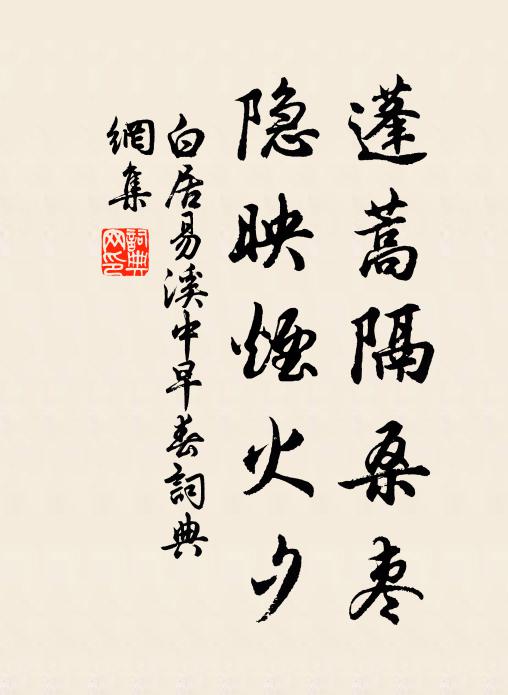 蓬蒿隔桑枣
隐映煙火夕
白居易溪中早春詞典
網集
詞典
网印